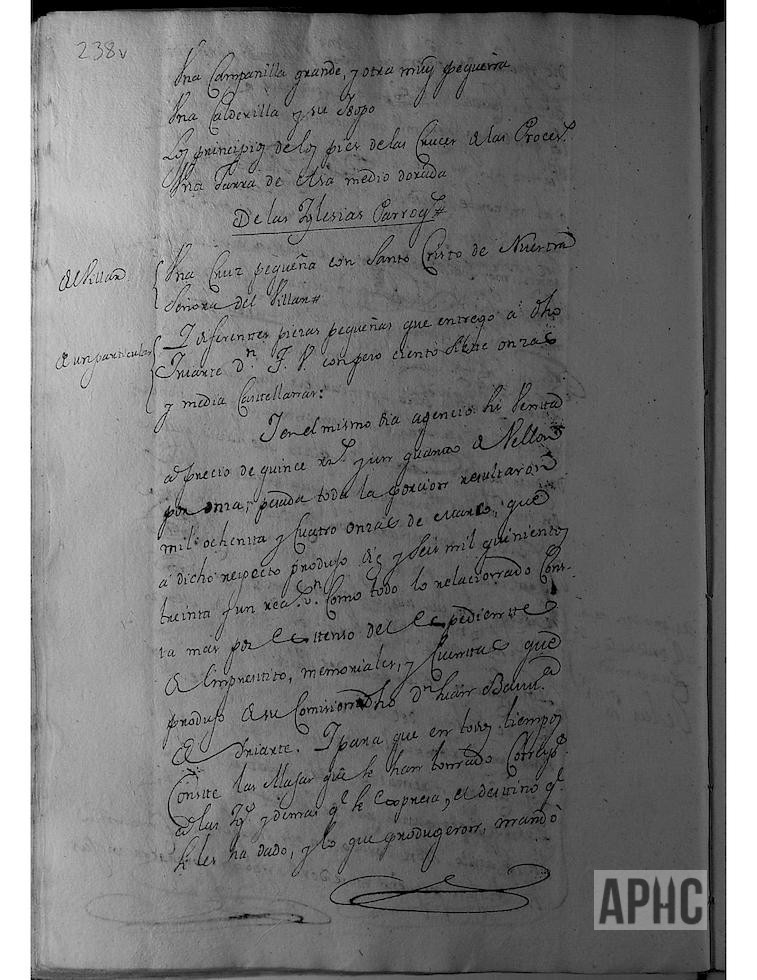 238v
Una Campanilla grande, y otra muy pequeña
Una Calderilla y su Ysopo
Los principios de los pies de las Cruces de las Proces.s
Una Jarra de elsa medio dorada
De las Yglesias Parroq.s
Del Villar
Una Cruz pequeña con Santo Cristo de Nuestra
Señora del Villar
De un particular
Y diferentes piezas pequeñas que entrego a dho
Yriarte d.n F. V. con peso ciento siete onzas
y media Castellanas:
Y en el mismo dia agencio su Venta
al precio de quince r.s y un quarto de Vellon
por onza; pesada toda la porcion resultaron
mil ochenta y cuatro onzas de marco, que
a dicho respecto produjo diez y seis mil quinientos
treinta y un rea.s v.n Como todo lo relacionado Cons-
ta mas por Extenso del Expediente
de Emprestito, memoriales, y Cuentas que
produjo de su Comision dho d.n Juan Bauu.a
de Yriarte. Y para que en todos tiempos
Conste las Alajas que se han tomado
a las Yg.s y demas q.e se Expresa, el destino q.e
se les ha dado, y lo que produgeron, mandò
APHC